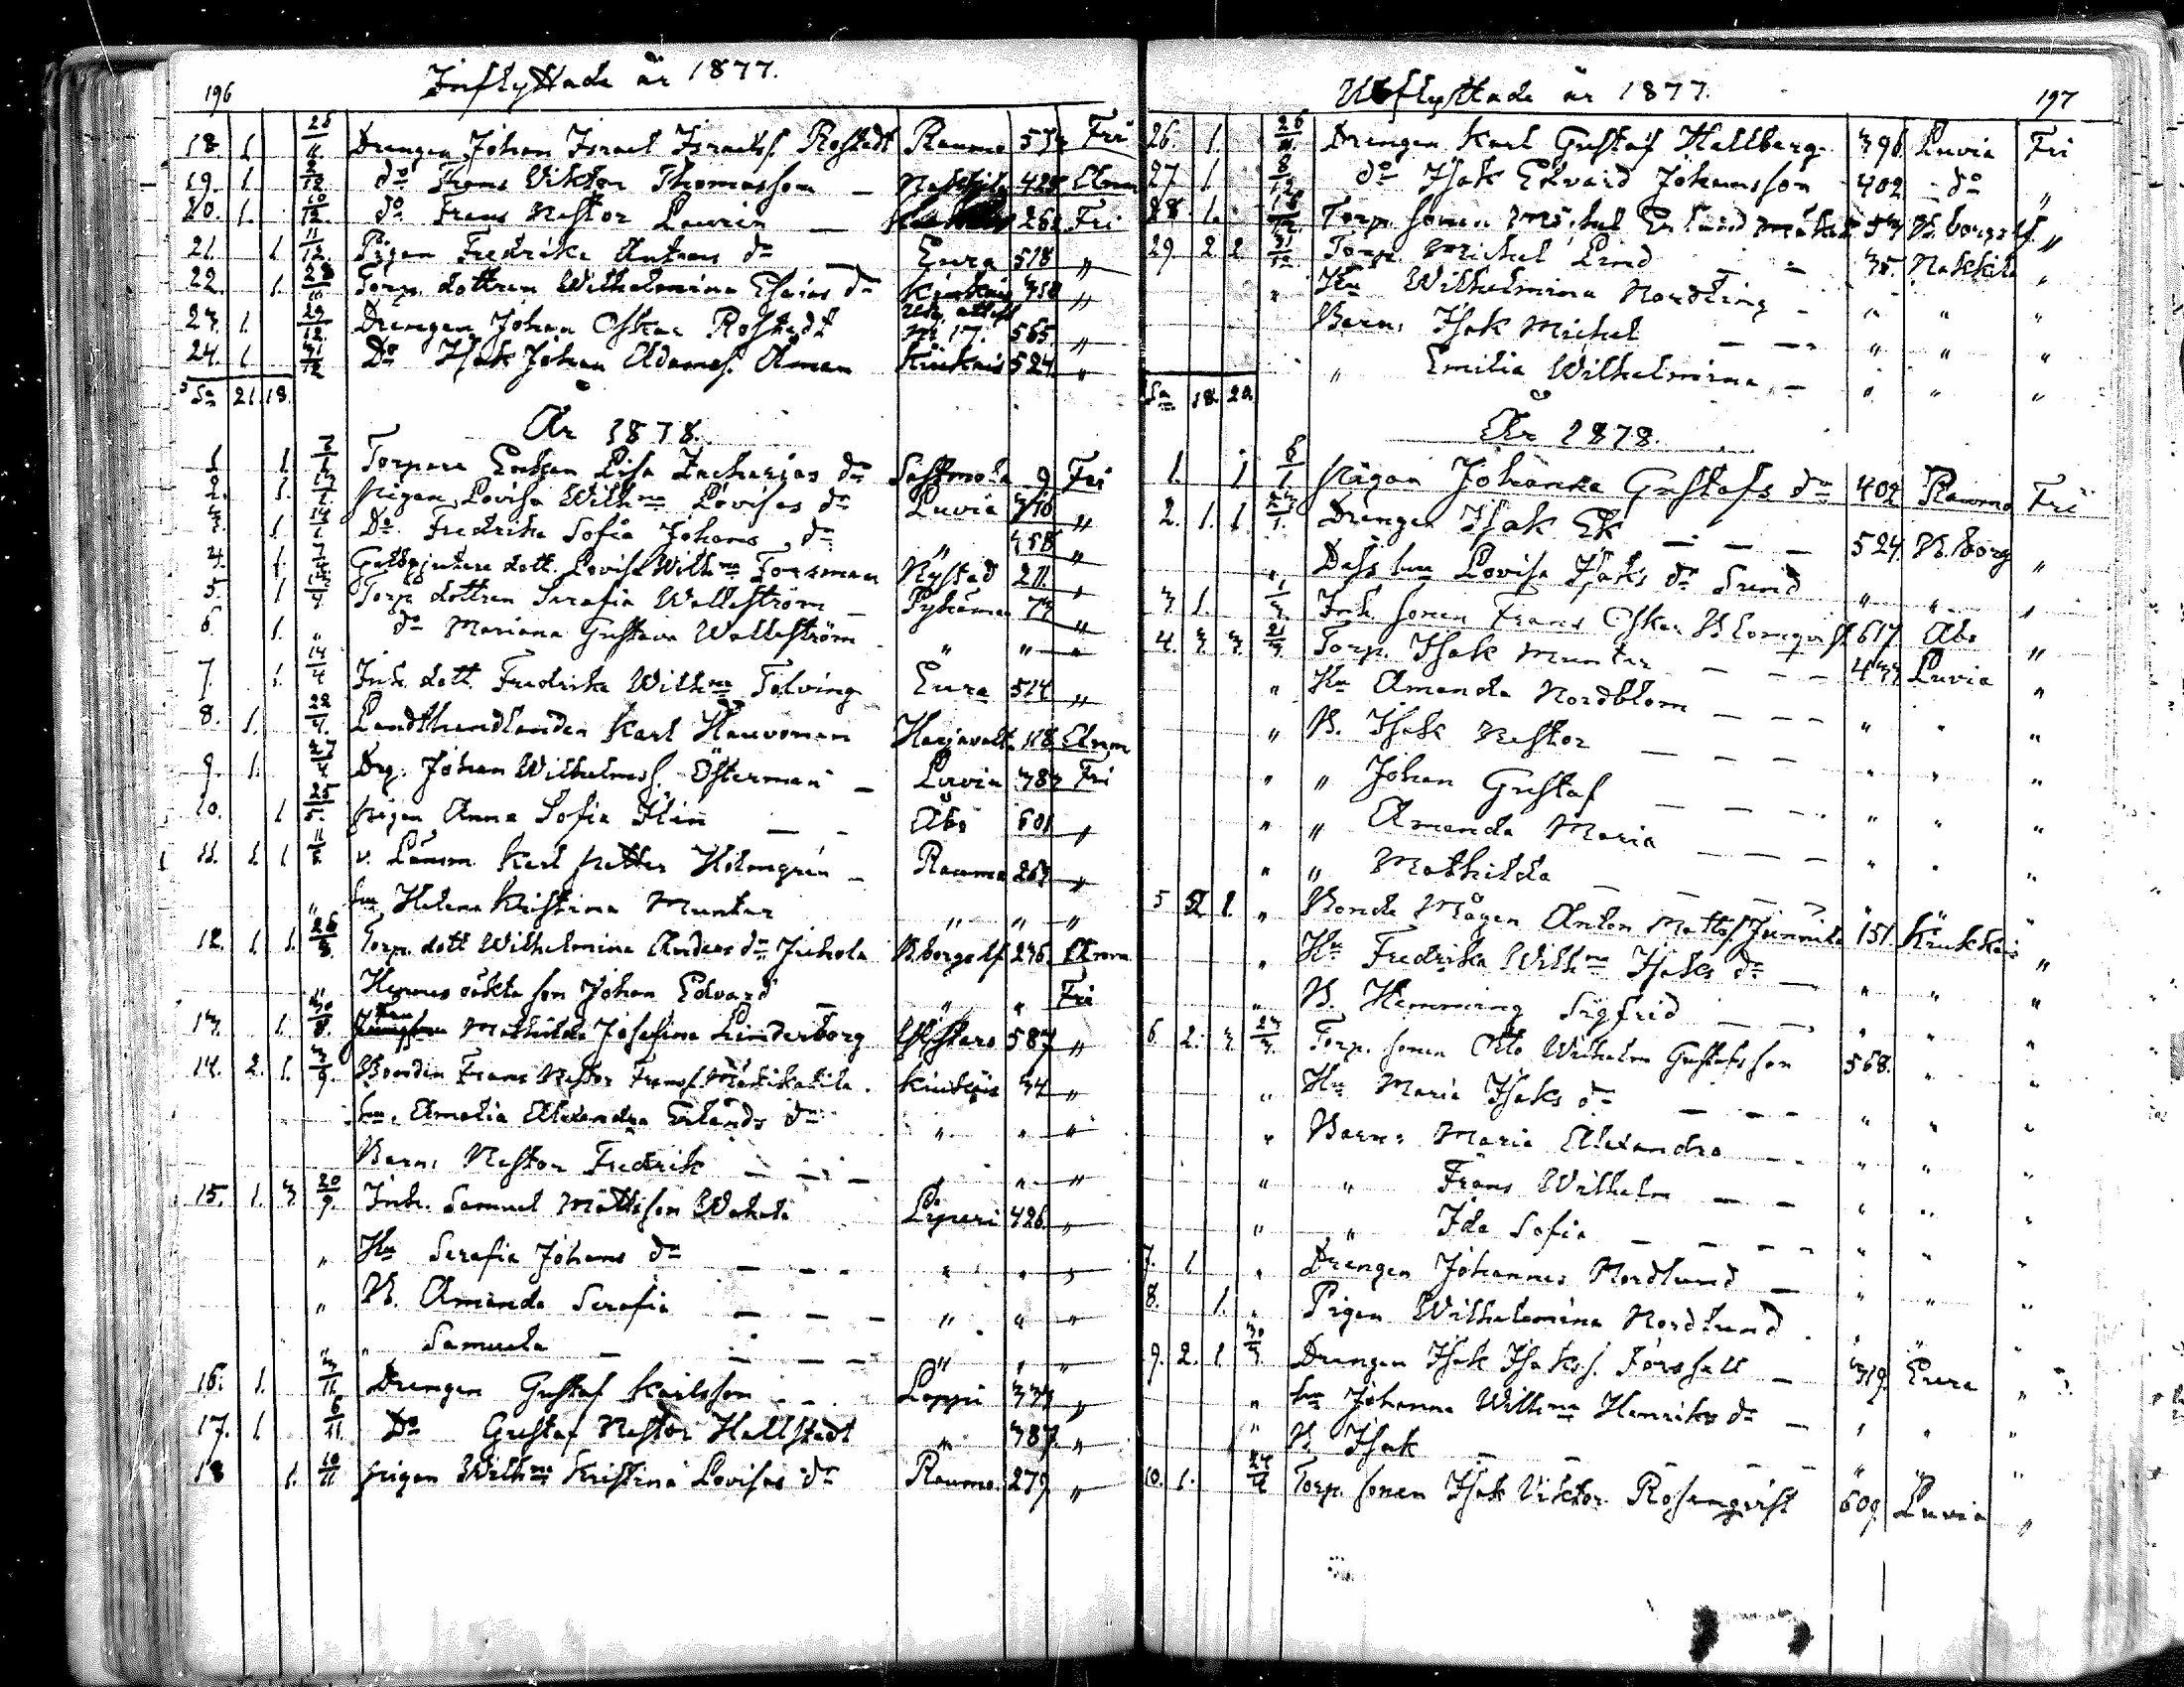 196
Inflyttade år 1877.
18. 1. 28/11. Drengen Johan Israel Israelss. Rostedt Raumo Fri
19. 1. 8/12. do Frans Viktor Thomasson — Nakkila 428 Elnm
20. 1. 10/12. do Frans Nestor Laurin — 261 Fri
21. 1 11/12. Pigan Fredrika Antons dr Eura 518 "
22. 1. 28/12 Torp. dottren Wilhelmina Esaias dr Kiukais 310 "
23. 1. 29/12. Drengen Johan Oskar Rostedt No 17. 565. "
24. 1 31/12 Do Isak Johan Adamss. Åman Kiukais 524. "
Sa 21. 18.
År 1878.
1. 1. Torpare Enkan Lisa Zacharias dr Sastmola 9 Fri
2. 1. Pigan Lovisa Wilhna Lovisas dr Luvia 310 "
3. 1 Do Fredrika Sofia Johans dr " 358 "
4. 1. dott. Lovisa Wilhna Forsman Nystad 211. "
5. 1 Torp. dottren Serafia Wallström — Pyhämaa 73 "
6. 1. " do Mariana Gustava Wallström " " "
7. 1. 14/4 Inh. dott. Fredrika Wilhna Tolving Eura 514 "
8. 1. 22/4. Landthandlanden Karl Hauvonen Harjavalta 118 Elnm
9. 1. 27/4 Drg. Johan Wilhelmss. Österman — Luvia 383 Fri
10. 1 25/5. Pigan Anna Sofia Ilin — - Åbo 601 "
11. 1. 1 v. Länsm. Karl Petter Holmgrén — Raumo 263 "
" hu Helena Kristina Munter " " "
12. 1. 1. 26/8. Torp. dott Wilhelmina Anders dr Juhola B.borgs lf. 236. Elnm
" Hennes oäkta son Johan Edvard — " " Fri
13. 1. 30/8. Mathilda Josefina Linderborg 587 "
14. 2. 1. 3/9. Bonden Frans Nestor Franss. Kiukais 34 "
hu Amalia Alexandra Erlands dr " " "
Barn: Nestor Fredrik — — — " " "
15. 1. 3 20/9. Inh. Samuel Mattsson Wakala Liperi 426 "
" Hu Serafia Johans dr — - - " " "
" B. Amanda Serafia — — — " " "
" " Samuela — — — — " " "
16. 1. 3/11 Drengen Gustaf Karlsson - - Loppi 333 "
17. 1. 6/11 Do Gustaf Nestor Hallstedt " 387. "
18 1. 10/11 Pigan Wilhna Kristina Lovisas dr Raumo. 279 "
197
Utflyttade år 1877.
26. 1. 26/11. Drengen Karl Gustaf Hallberg 396 Luvia Fri
27 1 8/12 do Isak Edvard Johansson 402 do "
28 1. Torp. sonen Michel Erland 53 B.borgs lf. "
29. 2 2 31/12. Torp. Michel Lind — - 35. Nakkila "
" Hu Wilhelmina Nordling - " " "
Barn: Isak Michel — — " " "
" Emilia Wilhelmina — " " "
Sa 18. 20.
År 1878.
1. 1 8/1 Pigan Johanna Gustafs dr 402 Raumo Fri
2. 1. 1. 23/1. Drengen Isak Ek — — — 524. B.borg "
" Dess hu Lovisa Isaks dr Sund " " "
3 1. 1/3 Inh. sonen Frans Oskar Blomqvist 617 Åbo "
4. 3 3 21/3 Torp. Isak Munter — — — 433 Luvia "
" Hu Amanda Nordblom — — — " " "
" B. Isak Nestor — — — " " "
" " Johan Gustaf — — — " " "
" " Amanda Maria — — — " " "
" " Mathilda — — — — " " "
5 2 1. " Bonde Mågen Anton Mattss. 151 Kiukkais "
" Hu Fredrika Wilhna Isaks dr — " " "
" B. Hemming Sigfrid — — " " "
6 2. 3 23/3. Torp. sonen Otto Wilhelm Gustafsson 568. " "
" Hu Maria Isaks dr — — — " " "
" Barn: Maria Alexandra — - " " "
" " Frans Wilhelm — — " " "
" " Ida Sofia — — — — " " "
7. 1. " Drengen Johannes Nordlund — " " "
8. 1. " Pigan Wilhelmina Nordlund . " " "
9. 2. 1 30/3 Drengen Isak Isakss. Forsell — 319. Eura "
" hu Johanna Wilhna Henriks dr — " " "
" B. Isak — — — — " " "
10. 1. 24/4 Torp. sonen Isak Viktor Rosenqvist 609 Luvia "